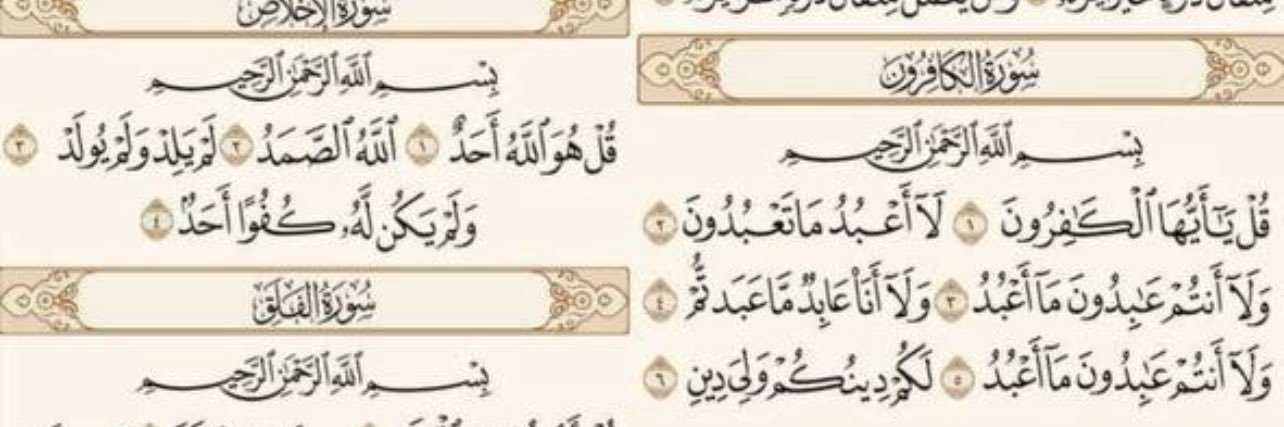 سُورَةُ الكَافِرُونَ
بِسْمِ ٱللَّهِ ٱلرَّحْمَٰنِ ٱلرَّحِيمِ
قُلْ يَـٰٓأَيُّهَا ٱلْكَـٰفِرُونَ ١ لَآ أَعْبُدُ مَا تَعْبُدُونَ ٢
وَلَآ أَنتُمْ عَـٰبِدُونَ مَآ أَعْبُدُ ٣ وَلَآ أَنَا۠ عَابِدٌ مَّا عَبَدتُّمْ ٤
وَلَآ أَنتُمْ عَـٰبِدُونَ مَآ أَعْبُدُ ٥ لَكُمْ دِينُكُمْ وَلِىَ دِينِ ٦
سُورَةُ الإِخْلَاصِ
بِسْمِ ٱللَّهِ ٱلرَّحْمَٰنِ ٱلرَّحِيمِ
قُلْ هُوَ ٱللَّهُ أَحَدٌ ١ ٱللَّهُ ٱلصَّمَدُ ٢ لَمْ يَلِدْ وَلَمْ يُولَدْ ٣
وَلَمْ يَكُن لَّهُۥ كُفُوًا أَحَدٌۢ ٤
سُورَةُ الفَلَقِ
بِسْمِ ٱللَّهِ ٱلرَّحْمَٰنِ ٱلرَّحِيمِ